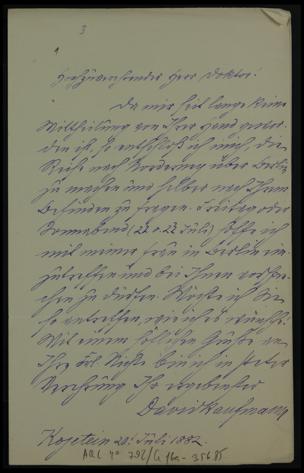 3
Hochzuverehrender Herr Doktor!
Da mir seit lange keine
Mittheilung von Ihrer Hand gewor-
den ist, so entschloß ich mich, die
Reise nach Norderney über Berlin
zu machen und selber nach Ihrem
Befinden zu fragen. Freitag oder
Sonnabend (21. o. 22. Juli) hoffe ich
mit meiner Frau in Berlin ein-
zutreffen und bei Ihnen vorspre-
chen zu dürfen. Möchte ich Sie
so antreffen, wie ich es wünsche.
Mit einem höflichen Gruße an
Ihre Frl. Nichte bin ich in steter
Verehrung Ihr ergebenster
David Kaufmann
Kojetein 20. Juli 1882.